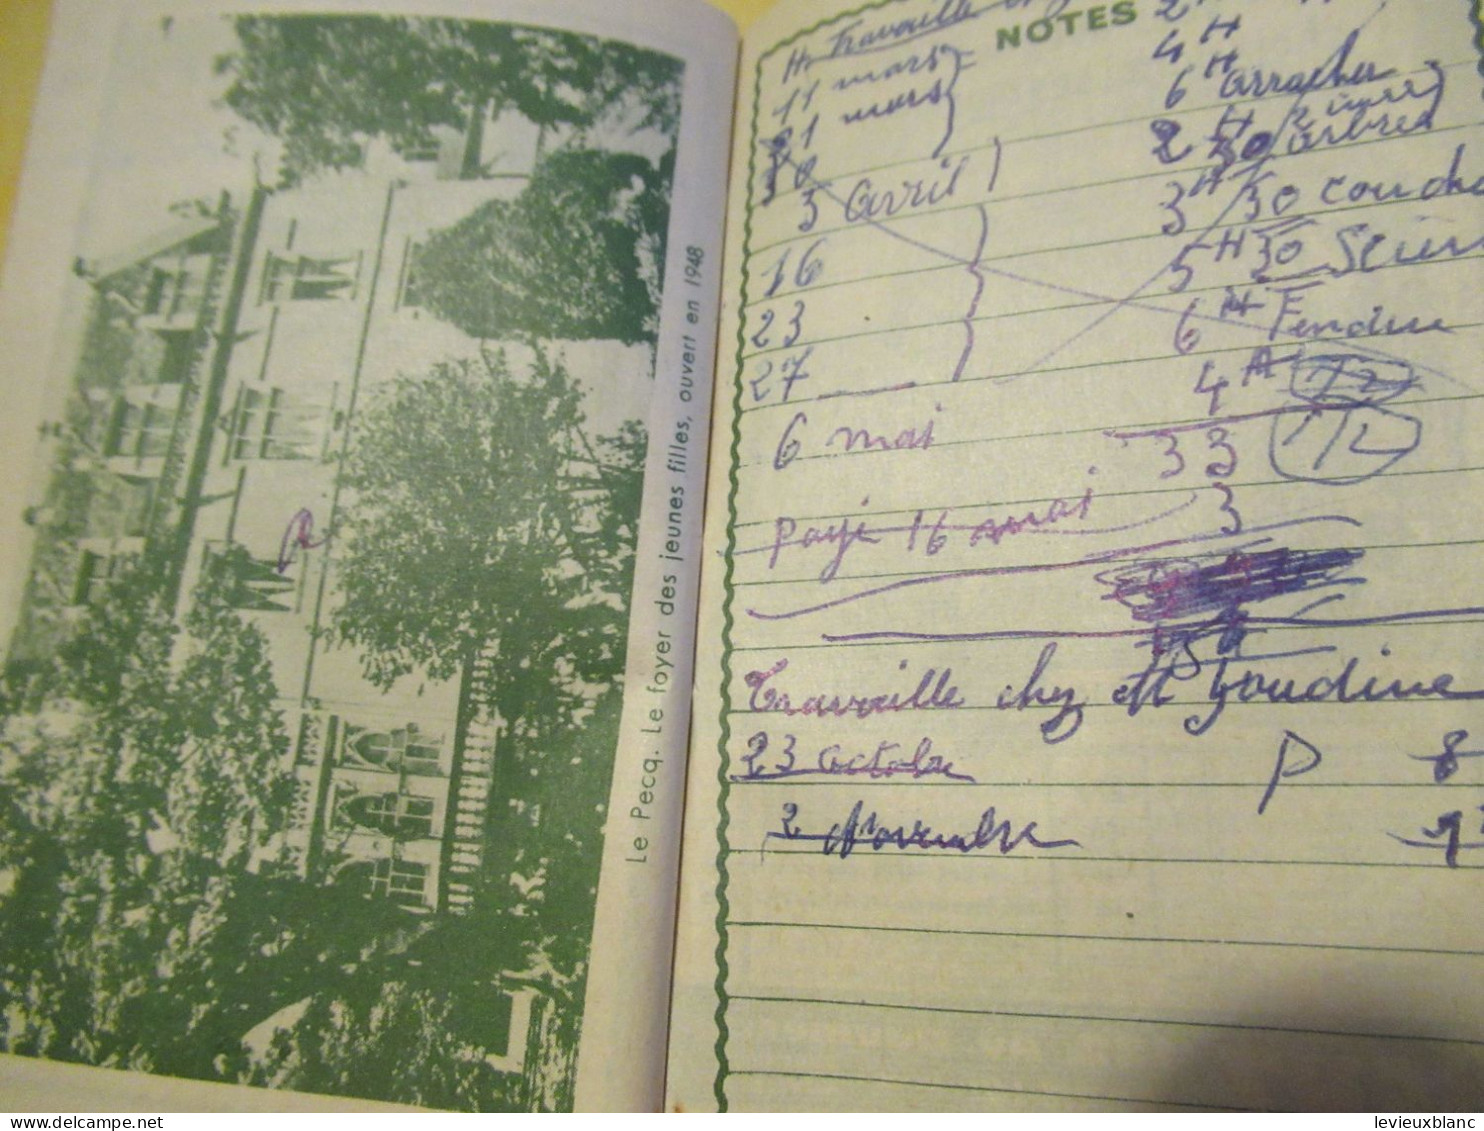 Le Pecq. Le foyer des jeunes filles, ouvert en 1948
NOTES
Travaille
11 mars 4 H
21 mars 6 H arracher
30 2 H 30 arbres
3 avril 3 H 30
16 5 H 30
23 6 H Fendre
27 4 H
6 mai 33 12
payé 16 mai 3
Travaille chez M Goudine
23 octobre P 8
2 Novembre
www.levieuxblanc.com